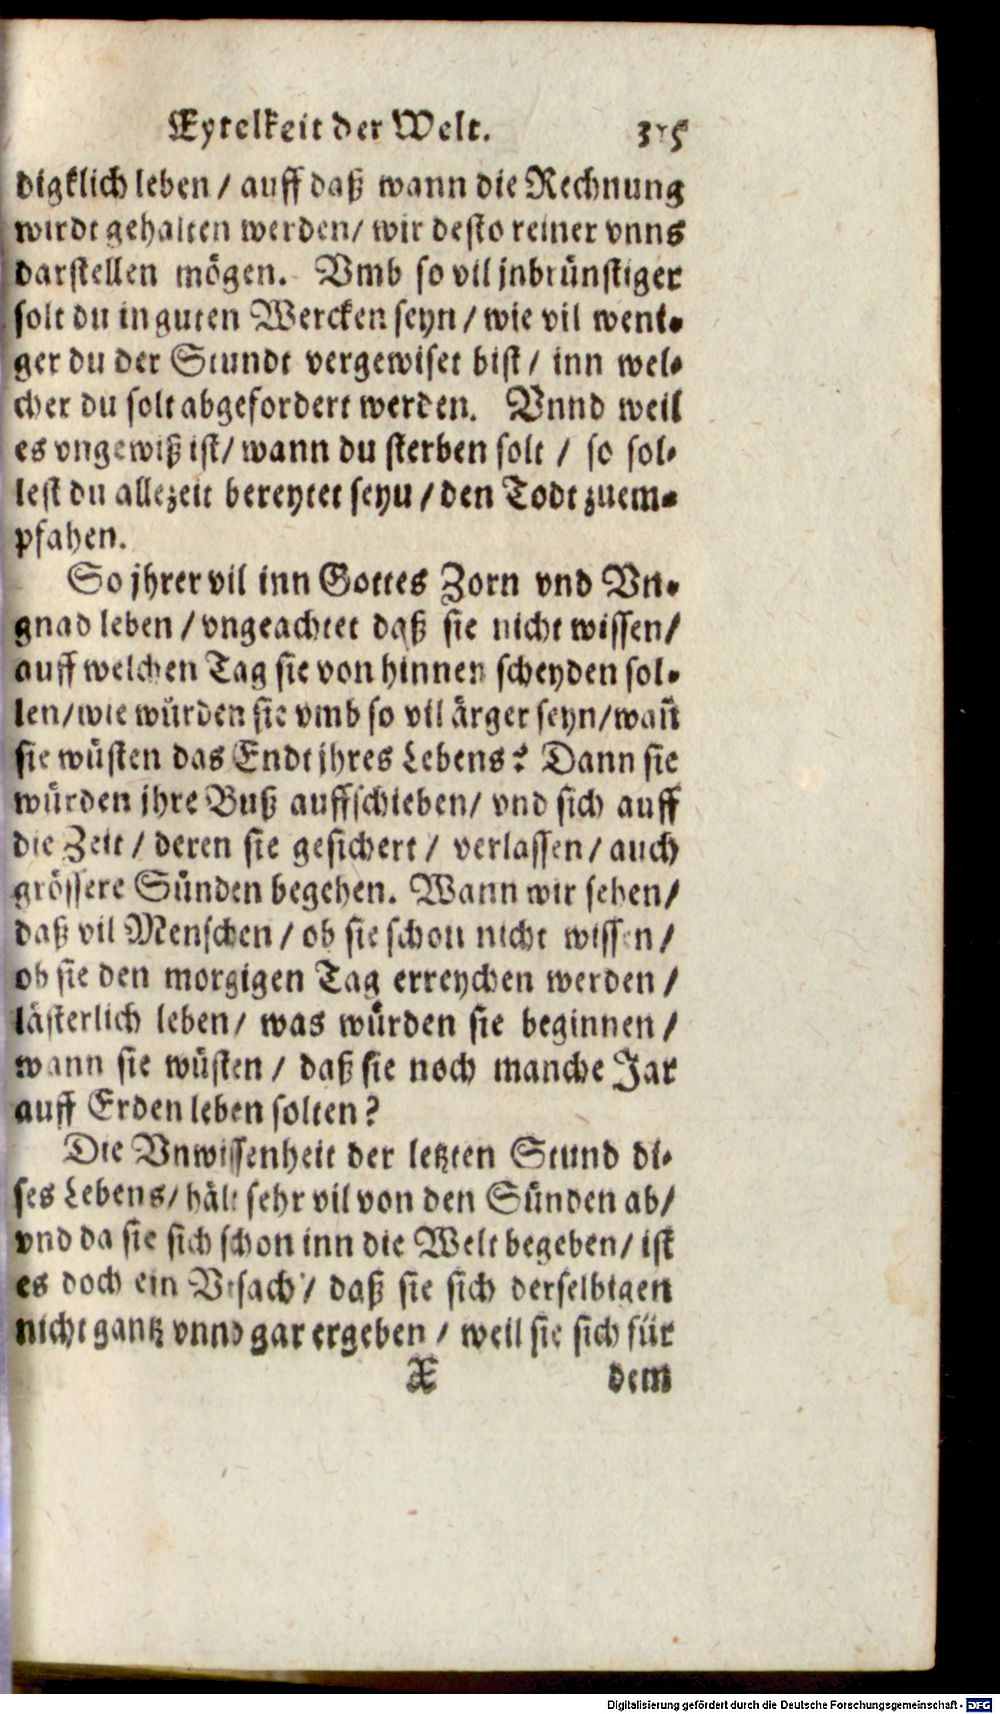 Eytelkeit der Welt. 315
digklich leben / auff daß wann die Rechnung
wirdt gehalten werden / wir desto reiner vnns
darstellen mögen. Vmb so vil jnbrünstiger
solt du in guten Wercken seyn / wie vil weni-
ger du der Stundt vergewiset bist / inn wel-
cher du solt abgefordert werden. Vnnd weil
es vngewiß ist / wann du sterben solt / so sol-
lest du allezeit bereytet seyn / den Todt zuem-
pfahen.
So jhrer vil inn Gottes Zorn vnd Vn-
gnad leben / vngeachtet daß sie nicht wissen /
auff welchen Tag sie von hinnen scheyden sol-
len / wie wůrden sie vmb so vil ärger seyn / wañ
sie wůsten das Endt jhres Lebens? Dann sie
würden jhre Buß auffschieben / vnd sich auff
die Zeit / deren sie gesichert / verlassen / auch
grössere Sůnden begehen. Wann wir sehen /
daß vil Menschen / ob sie schon nicht wissen /
ob sie den morgigen Tag erreychen werden /
lästerlich leben / was wůrden sie beginnen /
wann sie wůsten / daß sie noch manche Jar
auff Erden leben solten?
Die Vnwissenheit der letzten Stund di-
ses Lebens / hält sehr vil von den Sůnden ab /
vnd da sie sich schon inn die Welt begeben / ist
es doch ein Vrsach / daß sie sich derselbigen
nicht gantz vnnd gar ergeben / weil sie sich für
X dem
Digitalisierung gefördert durch die Deutsche Forschungsgemeinschaft - DFG